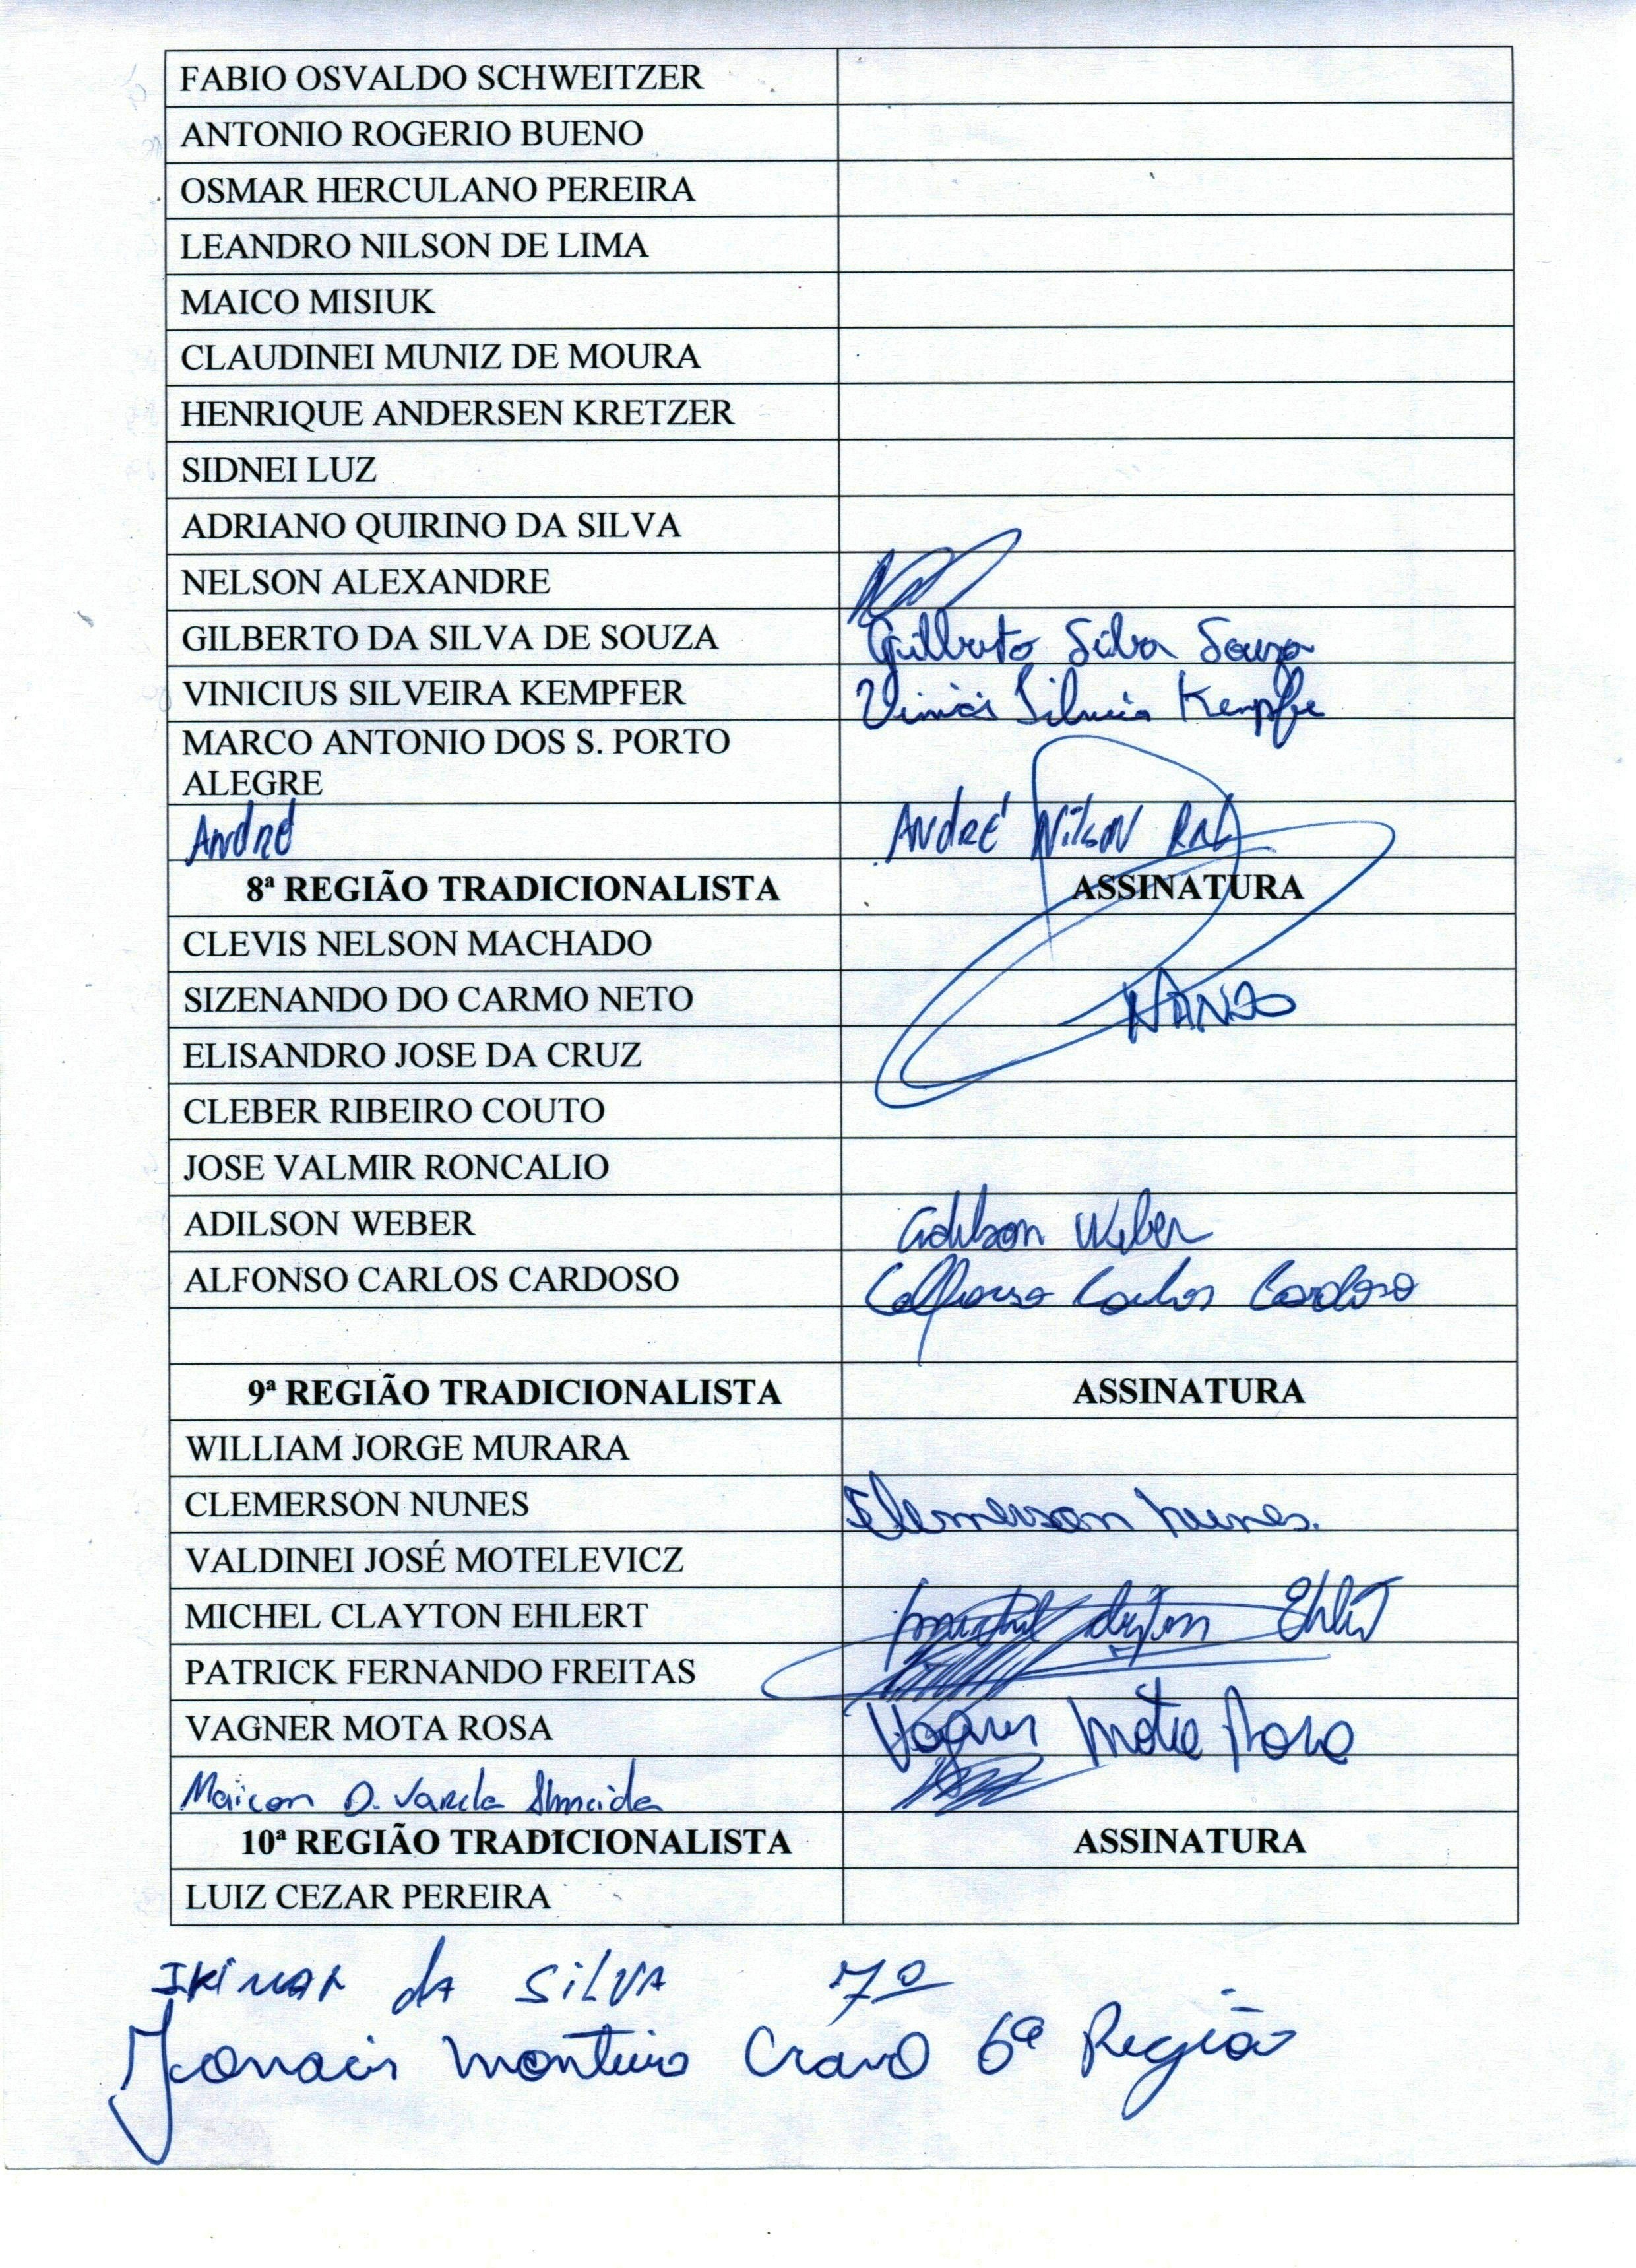 FABIO OSVALDO SCHWEITZER
ANTONIO ROGERIO BUENO
OSMAR HERCULANO PEREIRA
LEANDRO NILSON DE LIMA
MAICO MISIUK
CLAUDINEI MUNIZ DE MOURA
HENRIQUE ANDERSEN KRETZER
SIDNEI LUZ
ADRIANO QUIRINO DA SILVA
NELSON ALEXANDRE
GILBERTO DA SILVA DE SOUZA Gilberto Silva Souza
VINICIUS SILVEIRA KEMPFER Silveira Kempfer
MARCO ANTONIO DOS S. PORTO
ALEGRE
André ANDRÉ Nilson
8ª REGIÃO TRADICIONALISTA ASSINATURA
CLEVIS NELSON MACHADO
SIZENANDO DO CARMO NETO NANDO
ELISANDRO JOSE DA CRUZ
CLEBER RIBEIRO COUTO
JOSE VALMIR RONCALIO
ADILSON WEBER Adilson Weber
ALFONSO CARLOS CARDOSO Alfonso Carlos Cardoso
9ª REGIÃO TRADICIONALISTA ASSINATURA
WILLIAM JORGE MURARA
CLEMERSON NUNES Clemerson Nunes.
VALDINEI JOSÉ MOTELEVICZ
MICHEL CLAYTON EHLERT Ehlert
PATRICK FERNANDO FREITAS
VAGNER MOTA ROSA Vagner Mota Rosa
Maicon D. Varela Almeida
10ª REGIÃO TRADICIONALISTA ASSINATURA
LUIZ CEZAR PEREIRA
da SILVA 7º
Monteiro Cravo 6ª Região